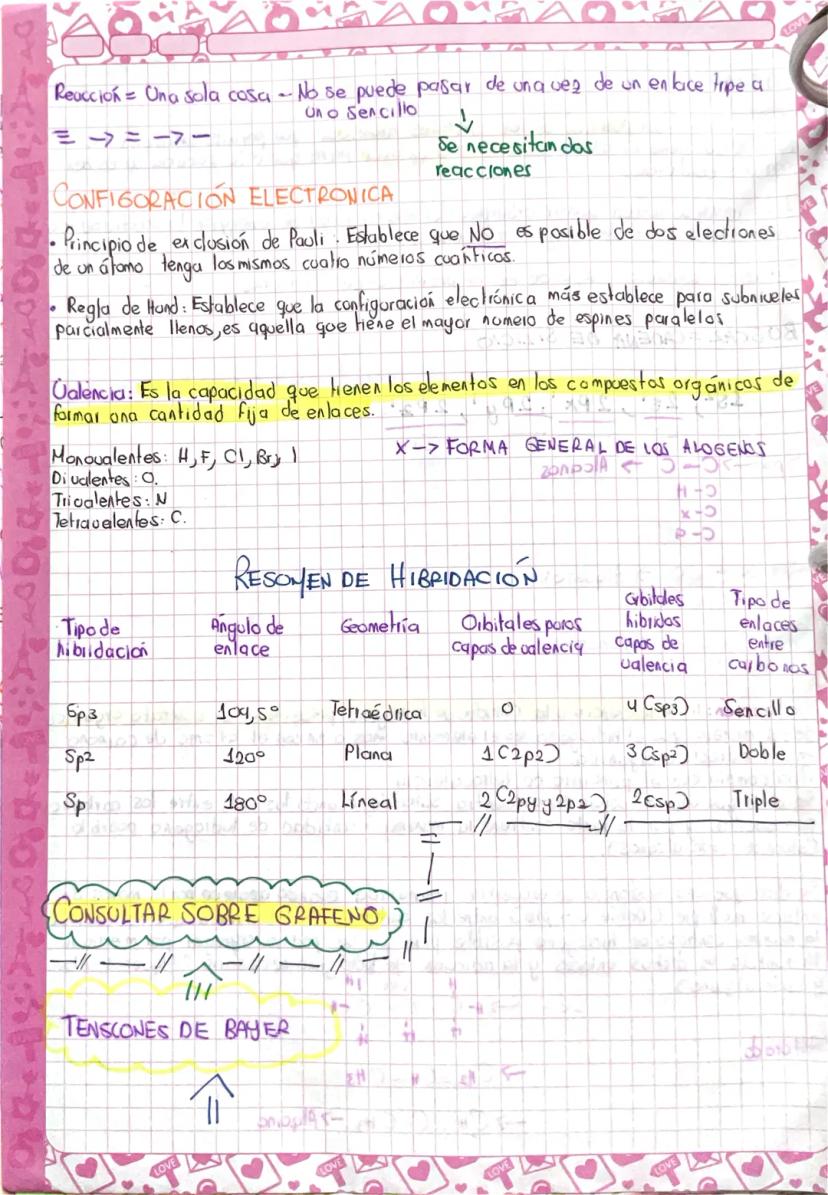 Reacción = Una sola cosa - No se puede pasar de una vez de un enlace tripe a
uno sencillo
≡ -> = -> -
↓
Se necesitan dos
reacciones
CONFIGORACIÓN ELECTRONICA
• Principio de exclusión de Paoli : Establece que NO es posible de dos electrones
de un átomo tenga los mismos cuatro números cuánticos.
• Regla de Hund: Establece que la configuración electrónica más establece para subniveles
parcialmente llenos, es aquella que tiene el mayor numero de espines paralelos
Valencia: Es la capacidad que tienen los elementos en los compuestos orgánicos de
formar una cantidad fija de enlaces.
Monovalentes: H, F, Cl, Br, I
X -> FORMA GENERAL DE LOS ALOGENOS
Divalentes: O.
Trivalentes: N
Tetravalentes: C.
RESUMEN DE HIBRIDACIÓN
Tipo de hibridación | Ángulo de enlace | Geometría | Orbitales puros capas de valencia | Orbitales hibridos capas de valencia | Tipo de enlaces entre carbonos
Sp3 104,5° Tetraédrica 0 4 (sp3) Sencillo
Sp2 120° Plana 1 (2p2) 3 (sp2) Doble
Sp 180° Líneal 2 (2py y 2p2) 2 (sp) Triple
CONSULTAR SOBRE GRAFENO
TENSCONES DE BAYER
LOVE
LOVE
LOVE
LOVE